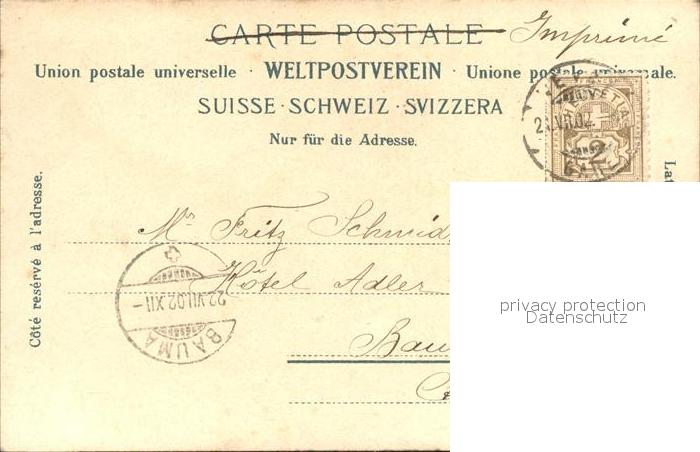 CARTE POSTALE Imprimé
Union postale universelle · WELTPOSTVEREIN · Unione postale universale.
SUISSE · SCHWEIZ · SVIZZERA
Nur für die Adresse.
HELVETIA
2
VII.02
Côté reservé à l'adresse.
Mr Fritz Schmid
Hôtel Adler
22.VII.02.XII-
BAUMA
privacy protection
Datenschutz